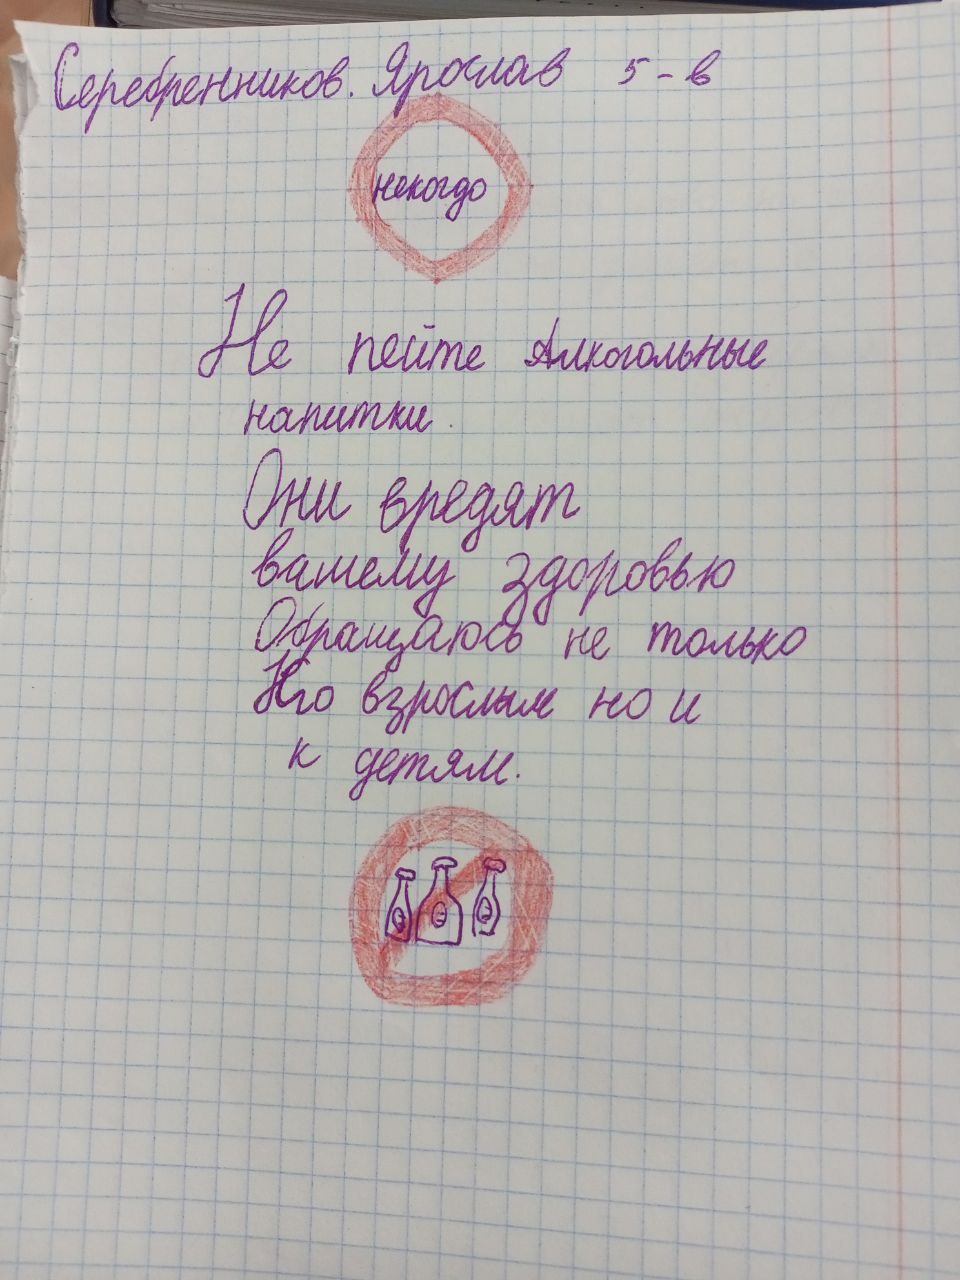 Серебренников. Ярослав 5-в
некогдо
Не пейте Алкогольные
напитки.
Они вредят
вашему здоровью
Обращаюсь не только
взрослым но и
к детям.